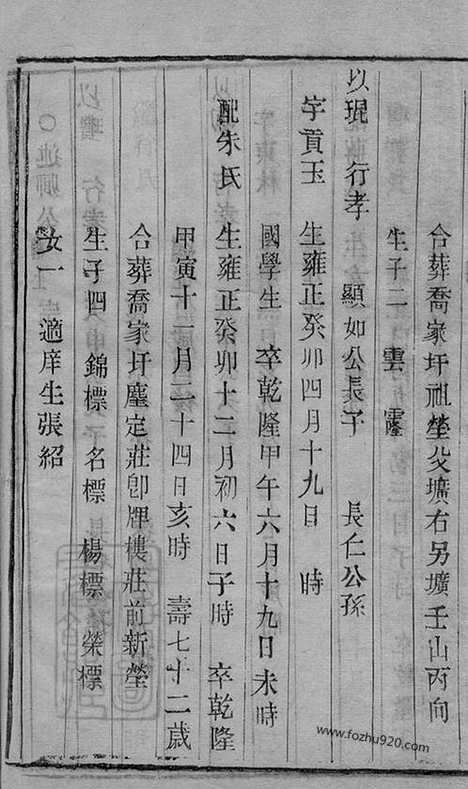 合葬喬家圩祖塋父壙右另壙壬山丙向
生子二 雲 隆
以琨 行孝 顯如公長子 長仁公孫
字貢玉 生雍正癸卯四月十九日 時
國學生 卒乾隆甲午六月十九日未時
配朱氏 生雍正癸卯十二月初六日子時 卒乾隆
甲寅十一月二十四日亥時 壽七十二歲
合葬喬家圩塵定莊卽牌樓莊前新塋
生子四 申錦標 名標 楊標 榮標
女一 適庠生張紹
www.fozhu920.com